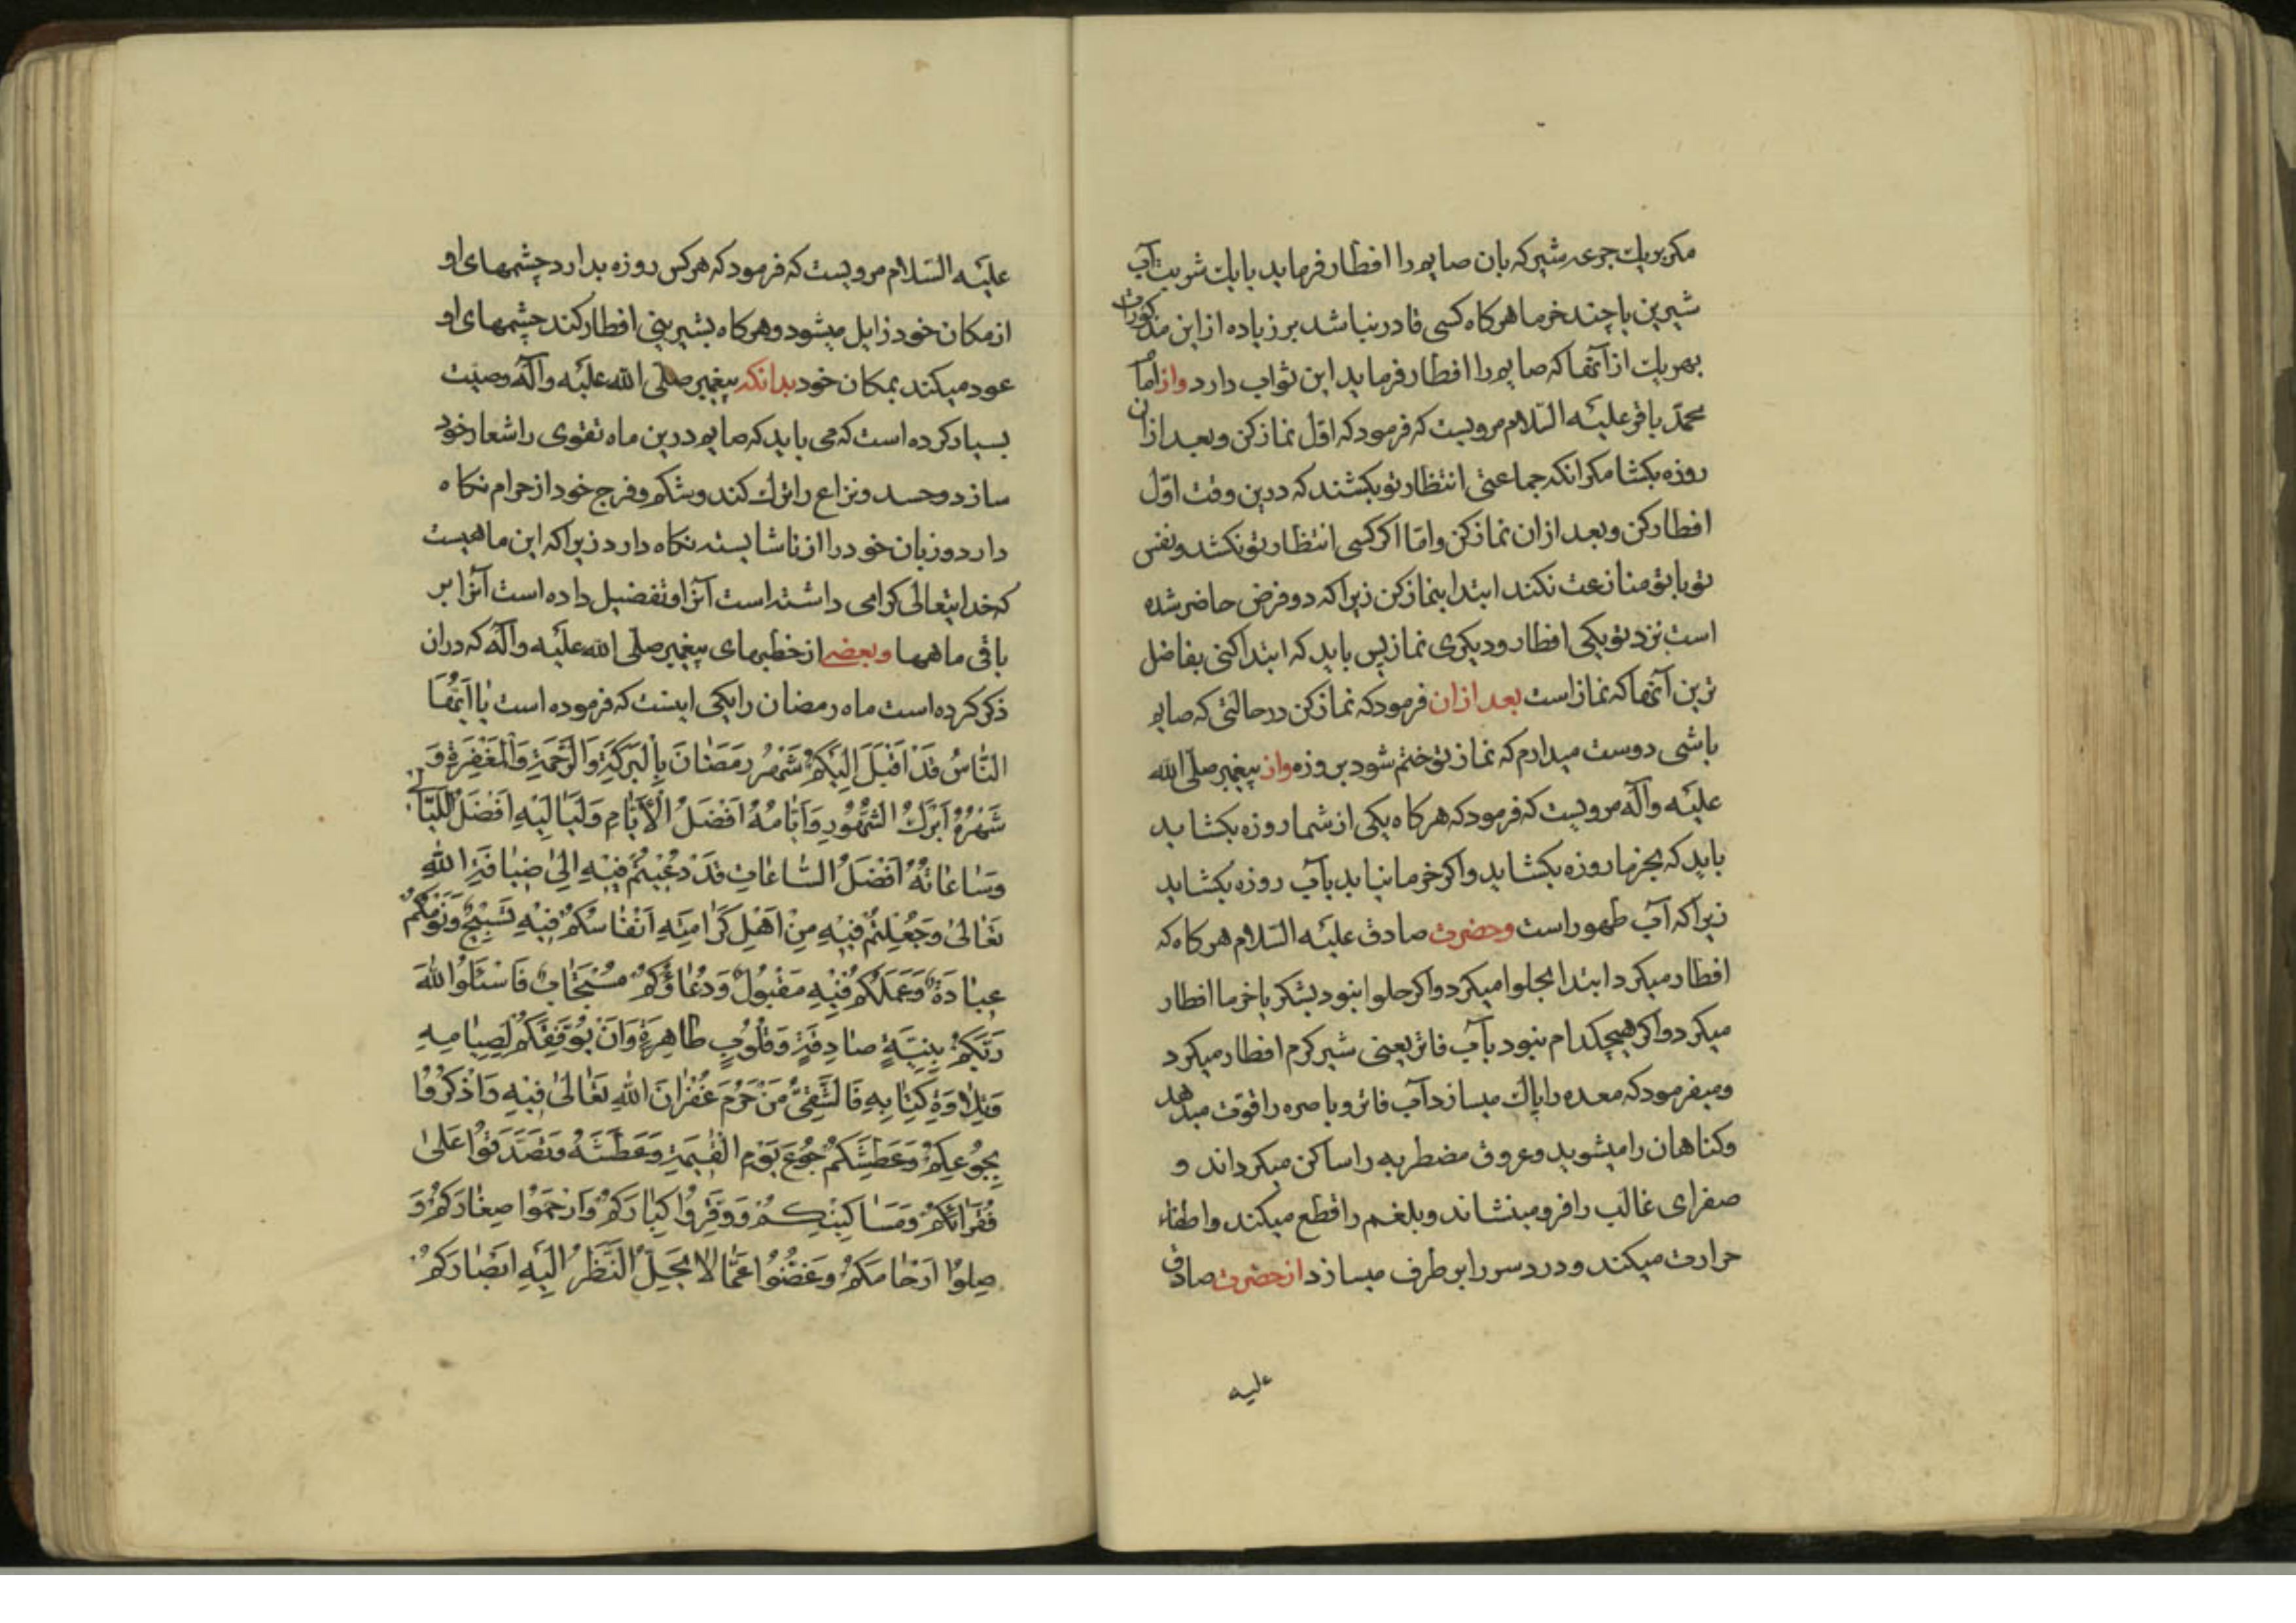 مکر بریك جرعه شیر که بان صایم را افطار فرماید یا بیك شربت آب
شیرین یا چند خرما هرکاه کسی قادر نباشد بر زیاده از این مذکورات
بهر یك از آنها که صایم را افطار فرماید این ثواب دارد واز امام
محمّد باقر علیه السّلام مرویست که فرمود که اوّل نماز کن وبعد ازان
روزه بکشا مکر انکه جماعتی انتظار تو بکشند که درین وقت اوّل
افطار کن وبعد ازان نماز کن وامّا اکر کسی انتظار تو نکشد ونفس
تو با تو منازعت نکند ابتدا بنماز کن زیرا که دو فرض حاضر شده
است نزد تو یکی افطار ودیکری نماز پس باید که ابتدا کنی بفاضل
ترین آنها که نماز است بعد ازان فرمود که نماز کن در حالتی که صایم
باشی دوست میدارم که نماز تو ختم شود بروزه واز پیغمبر صلّی الله
علیه وآله مرویست که فرمود که هرکاه یکی از شما روزه بکشاید
باید که بخرما روزه بکشاید واکر خرما نیابد بآب روزه بکشاید
زیرا که آب طهور است وحضرت صادق علیه السّلام هرکاه که
افطار میکرد ابتدا بحلوا میکرد واکر حلوا نبود بشکر یا خرما افطار
میکرد واکر هیچکدام نبود بآب فاتر یعنی شیر کرم افطار میکرد
ومیفرمود که معده را پاك میسازد آب فاتر وباصره را قوّت میدهد
وکناهان را میشوید وعروق مضطربه را ساکن میکرداند و
صفرای غالب را فرو مینشاند وبلغم را قطع میکند واطفاء
حرارت میکند ودرد سر را بر طرف میسازد از حضرت صادق
علیه
علیه السّلام مرویست که فرمود که هرکس روزه بدارد چشمهای او
از مکان خود زایل میشود وهرکاه بشیرینی افطار کند چشمهای او
عود میکند بمکان خود بدانکه پیغمبر صلّی الله علیه وآله وصیّت
بسیار کرده است که می باید که صایم درین ماه تقوی را شعار خود
سازد وحسد ونزاع را ترك کند وشکم وفرج خود از حرام نکاه
دارد وزبان خود را از ناشایسته نکاه دارد زیرا که این ماهیست
که خدایتعالی کرامی داشته است آنرا وتفضیل داده است آنرا بر
باقی ماهها وبعضی از خطبهای پیغمبر صلّی الله علیه وآله که دران
ذکر کرده است ماه رمضان را یکی اینست که فرموده است یا اَیُّهَا
النّٰاسُ قَدْ اَقْبَلَ اِلَیْکُمْ شَهْرُ رَمَضٰانَ بِالْبَرَکَةِ وَالرَّحْمَةِ وَالْمَغْفِرَةِ وَ
شَهْرُهُ اَبْرَكُ الشُّهُورِ وَاَیّٰامُهُ اَفْضَلُ الْاَیّٰامِ وَلَیٰالِیْهِ اَفْضَلُ اللَّیٰالِی
وَسٰاعٰاتُهُ اَفْضَلُ السّٰاعٰاتِ قَدْ دُعِیْتُمْ فِیْهِ اِلیٰ ضِیٰافَةِ اللهِ
تَعٰالیٰ وَجُعِلْتُمْ فِیْهِ مِنْ اَهْلِ کَرٰامَتِهِ اَنْفٰاسُکُمْ فِیْهِ تَسْبِیْحٌ وَنَوْمُکُمْ
عِبٰادَةٌ وَعَمَلُکُمْ فِیْهِ مَقْبُولٌ وَدُعٰاؤُکُمْ مُسْتَجٰابٌ فَاسْئَلُوا اللهَ
رَبَّکُمْ بِنِیَّةٍ صٰادِقَةٍ وَقُلُوْبٍ طٰاهِرَةٍ وَاَنْ یُوَفِّقَکُمْ لِصِیٰامِهِ
وَتِلٰاوَةِ کِتٰابِهِ فَالشَّقِیُّ مَنْ حُرِمَ غُفْرٰانَ اللهِ تَعٰالیٰ فِیْهِ وَاذْکُرُوْا
بِجُوْعِکُمْ وَعَطَشِکُمْ جُوْعَ یَوْمِ الْقِیٰمَةِ وَعَطَشَهُ وَتَصَدَّقُوْا عَلیٰ
فُقَرٰائِکُمْ وَمَسٰاکِیْنِکُمْ وَوَقِّرُوْا کِبٰارَکُمْ وَارْحَمُوْا صِغٰارَکُمْ وَ
صِلُوْا اَرْحٰامَکُمْ وَغَضُّوْا عَمّٰا لٰا یَحِلُّ النَّظَرُ اِلَیْهِ اَبْصٰارَکُمْ